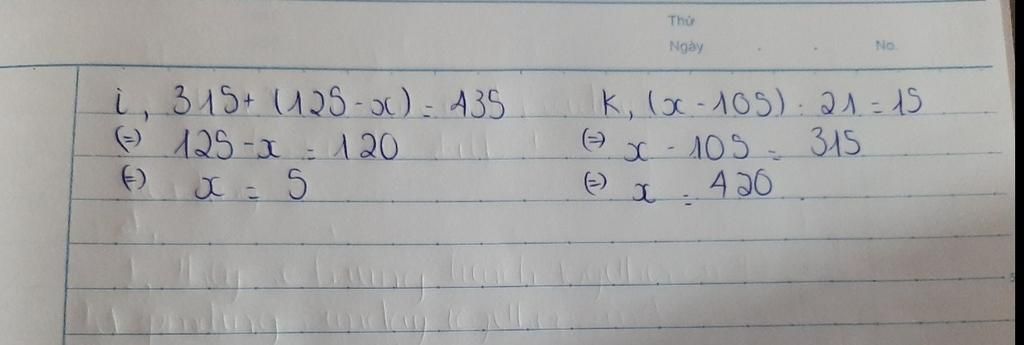 Thứ
Ngày . . No.
i, 315 + (125 - x) = 435
(=) 125 - x = 120
(=) x = 5
k, (x - 105) : 21 = 15
(=) x - 105 = 315
(=) x = 420